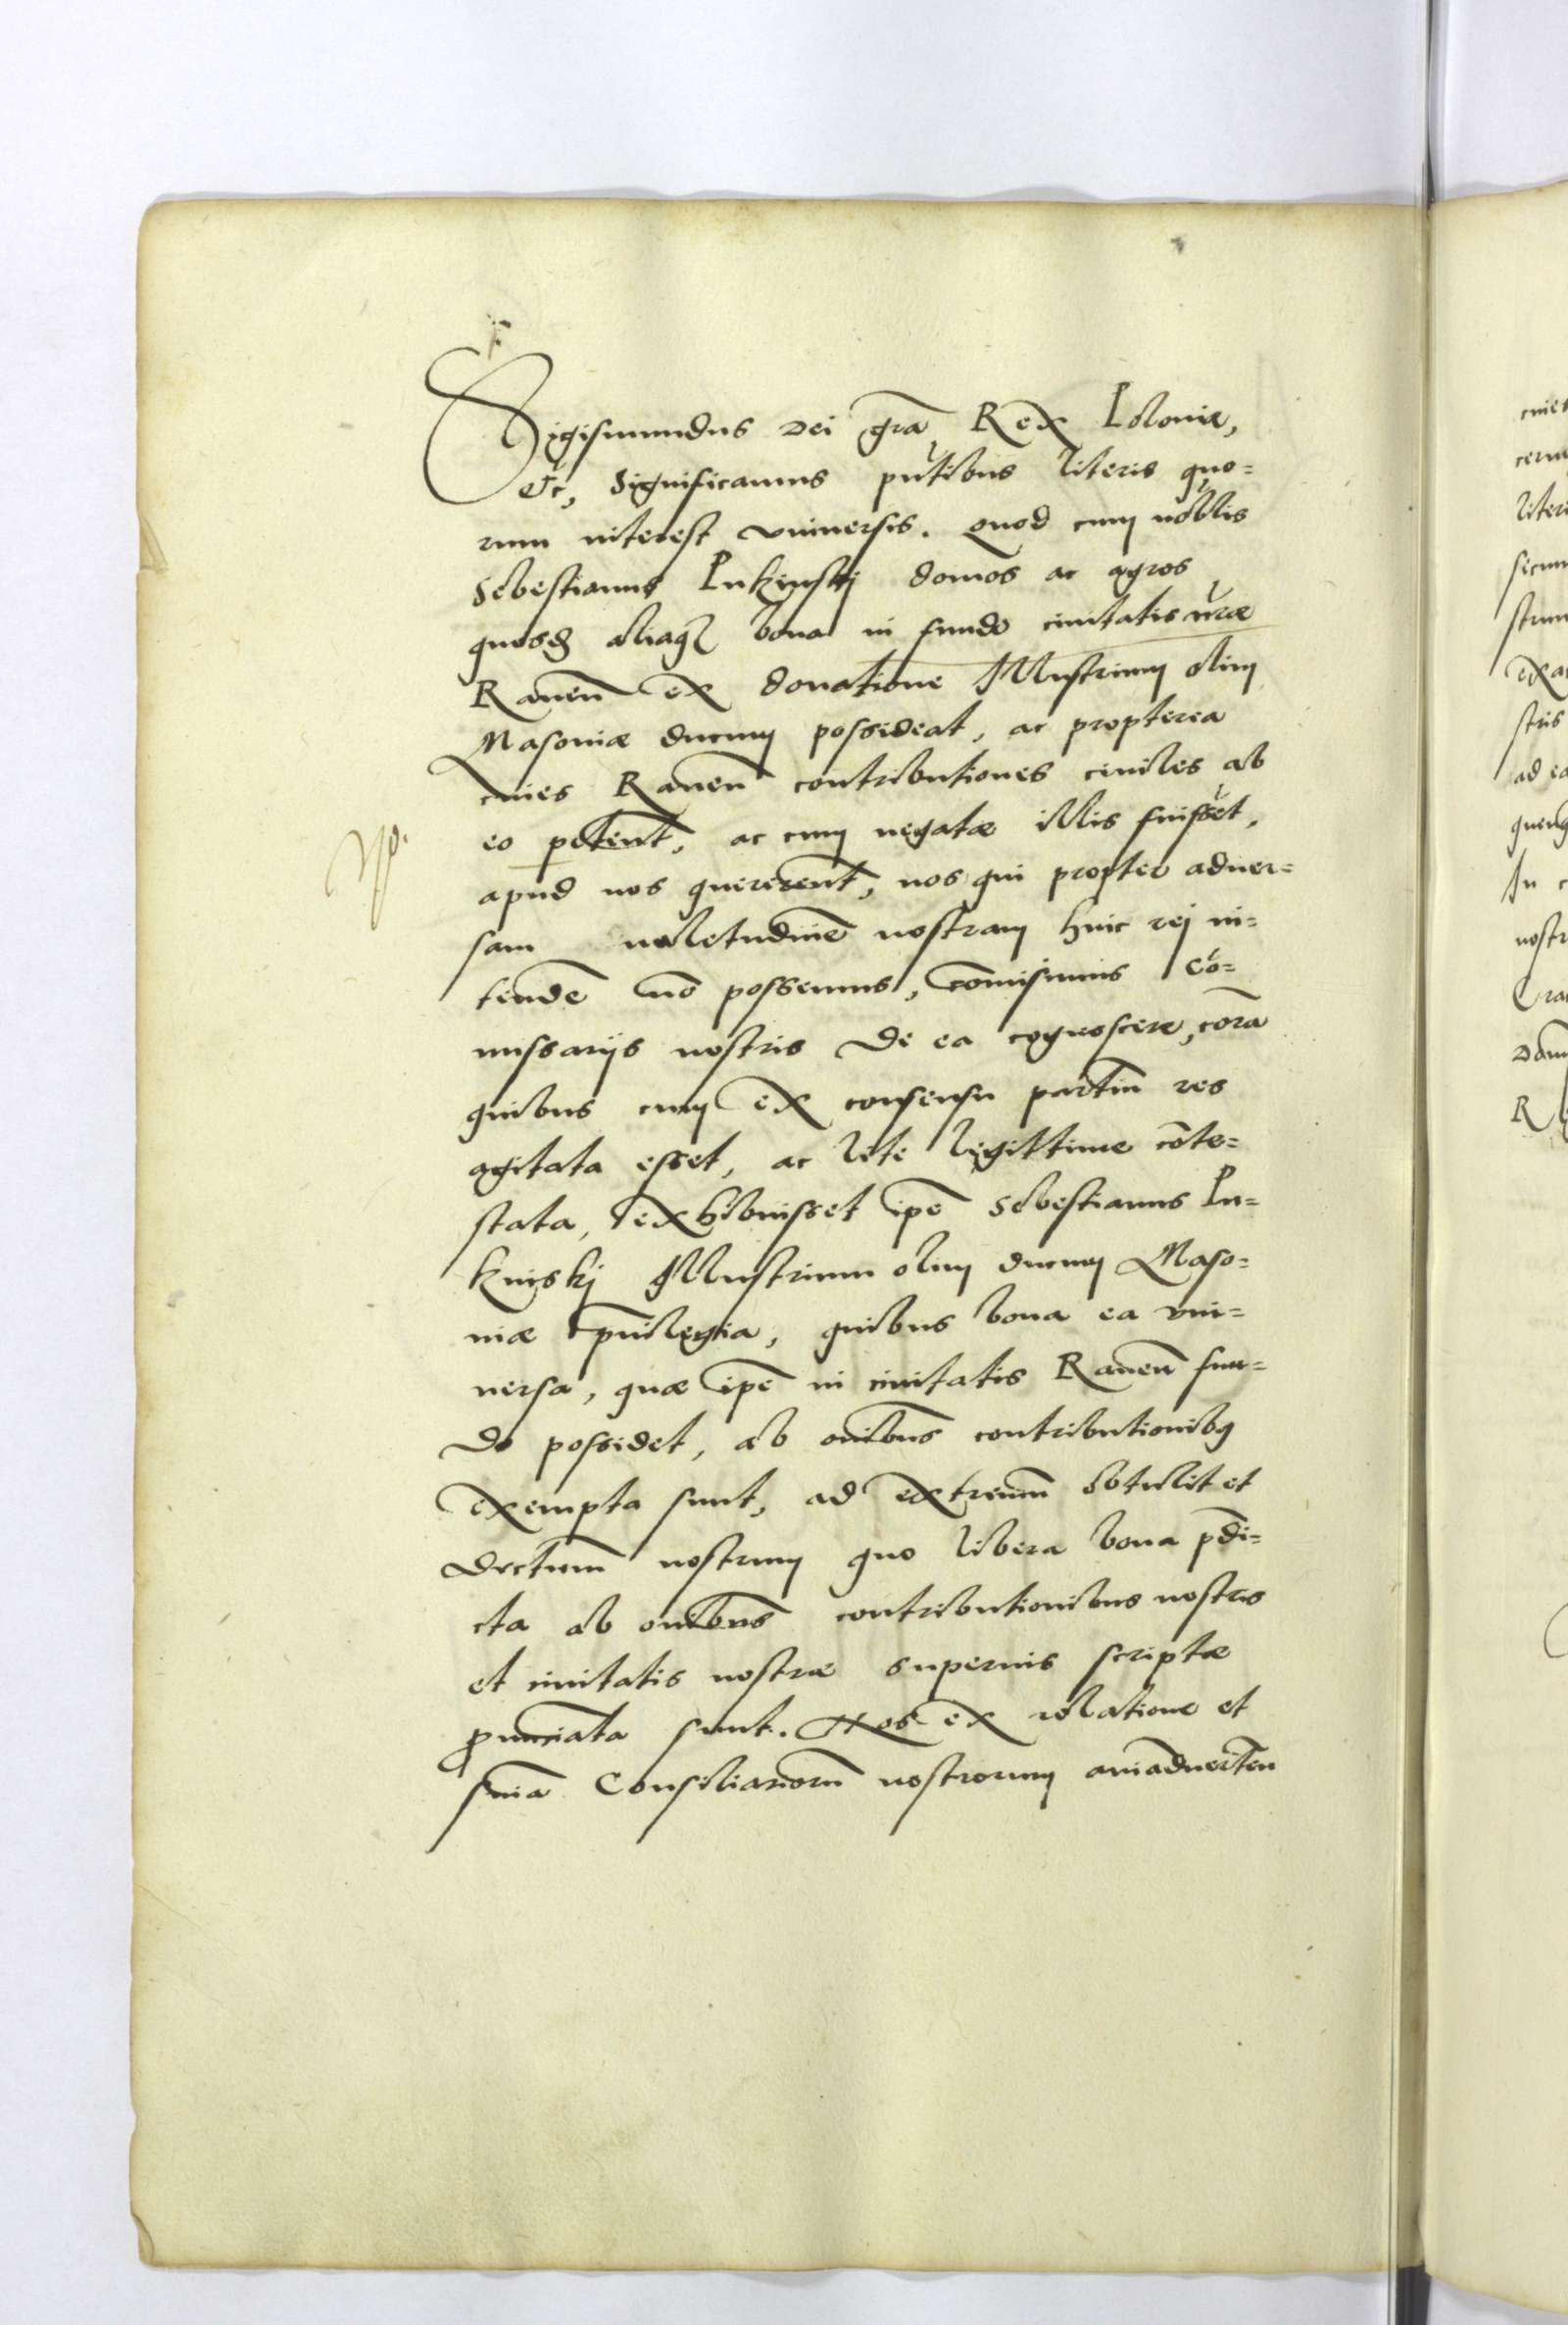 Sigismundus Dei gra͂ Rex Poloniæ,
etc, Significamus pn̄tibus literis quo=
rum interest vniuersis. Quod cum nobilis
Sebestianus Lukinskj domos ac agros
quosdā aliaq₃ bona in fundo ciuitatis nr̄æ
Rauen̄ ex donatione Illustrium olim
Masoniæ ducum possideat, ac propterea
ciues Rauen̄ contributiones ciuiles ab
eo petent̄, ac cum negatæ illis fuissēt,
apud nos quererent̄, nos qui propter aduer=
sam ualetudinē nostram huic rej in=
tendē nō possemus, com̄isimus Cō=
missarijs nostris de ea cognoscere, corā
quibus cum ex consensu partiū res
agitata esset, ac lite legittime cōte=
stata, exhibuisset ipē Sebestianus Lu=
kinskj Illustrium olim ducum Maso=
niæ pͥuilegia, quibus bona ea vni=
uersa, quæ ipē in ciuitatis Rauen̄ fun=
do possidet, ab om̄ibus contributionibꝫ
exempta sunt, ad extremū obtulit et
decretum nostrum quo libera bona pdi=
cta ab om̄ibus contributionibus nostris
et ciuitatis nostræ superius scriptæ
ꝓnunciata sunt. Nos ex relatione et
sn̄ia Consiliariorū nostrorum aniaduerten
cuies
literi
stris
ad ea
In
nostr
Cra
R